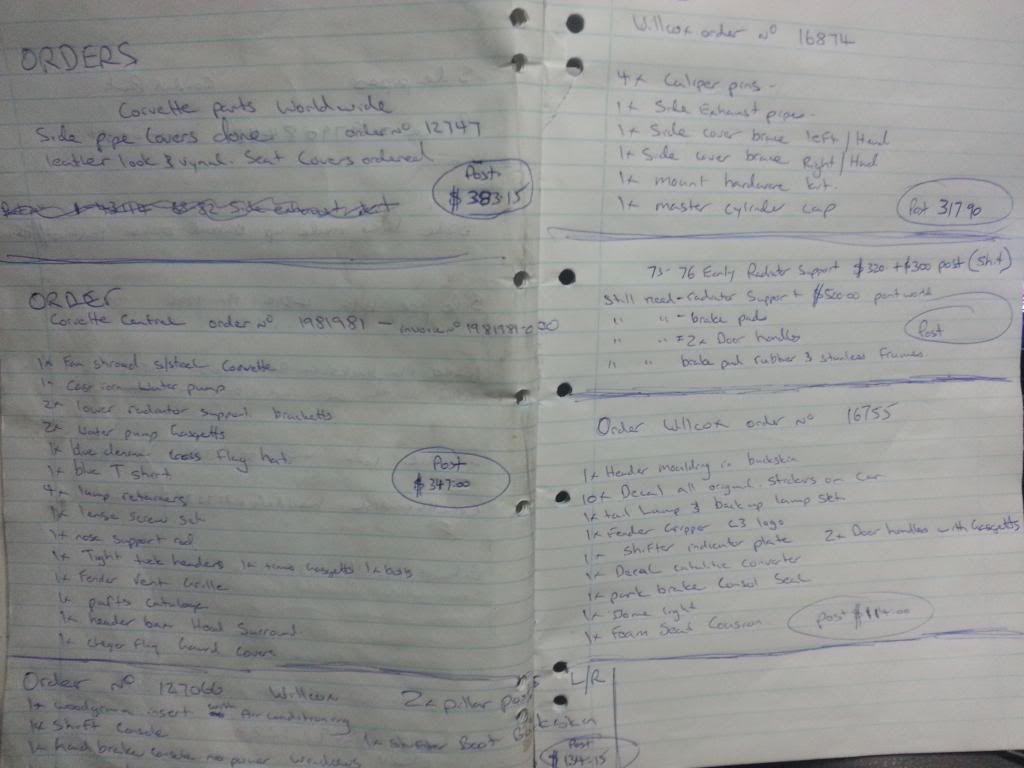 ORDERS
Corvette parts Worldwide
Side pipe Covers done order nº 12747
leather look & vynal. Seat Covers ordered
Post
$383.15
ORDER
Corvette Central order nº 1981981 - invoice nº 1981981-0.00
1x Fan shroud s/steel Corvette
1x Cast iron Water pump
2x lower radiator support bracketts
2x Water pump Gasgetts
1x blue denim cross flag hat.
1x blue T shirt
4x lamp retainers
1x lense screw set
1x nose support rod
1x Tight tuck headers 1x Gasgetts 1x bolts
1x Fender Vent Grille
1x parts cataloge
1x header bar Hood Surround
1x cheqer flag Guard Covers
Post
$347.00
Order Nº 127066 Willcox 2x pillar post L/R
1x woodgrain insert with Air conditioning
1x Shift Console 1x Shifter Boot
1x hand brake console no power windows
Post
$134.15
Willcox order nº 16874
4x Caliper pins -
1x Side Exhaust pipes -
1x Side cover brace left / Hand
1x Side cover brace Right / Hand
1x mount hardware kit.
1x master cylinder cap
Post 317.90
73-76 Early Radiator Support $320 + $300 post (Shit)
Still need - radiator Support + $500.00
" " - brake pads
" " = 2x Door handles
" " brake pad rubber & stainless frames
Post
Order Willcox order nº 16755
1x Header moulding in buckskin
10x Decal all original stickers on Car
1x tail lamp & back up lamp set
1x Fender Gripper C3 logo
1x shifter indicator plate 2x Door handles with Gasgetts
1x Decal catalitic converter
1x park brake Consol Seal
1x Dome light
1x Foam Seat Cousion
post $114.00